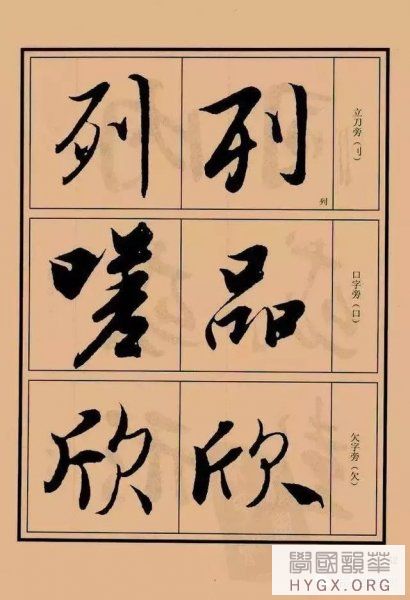 立刀旁（刂）
列
列
列
口字旁（口）
品
嗟
欠字旁（欠）
欣
欣
華韻國學
HYGX.ORG